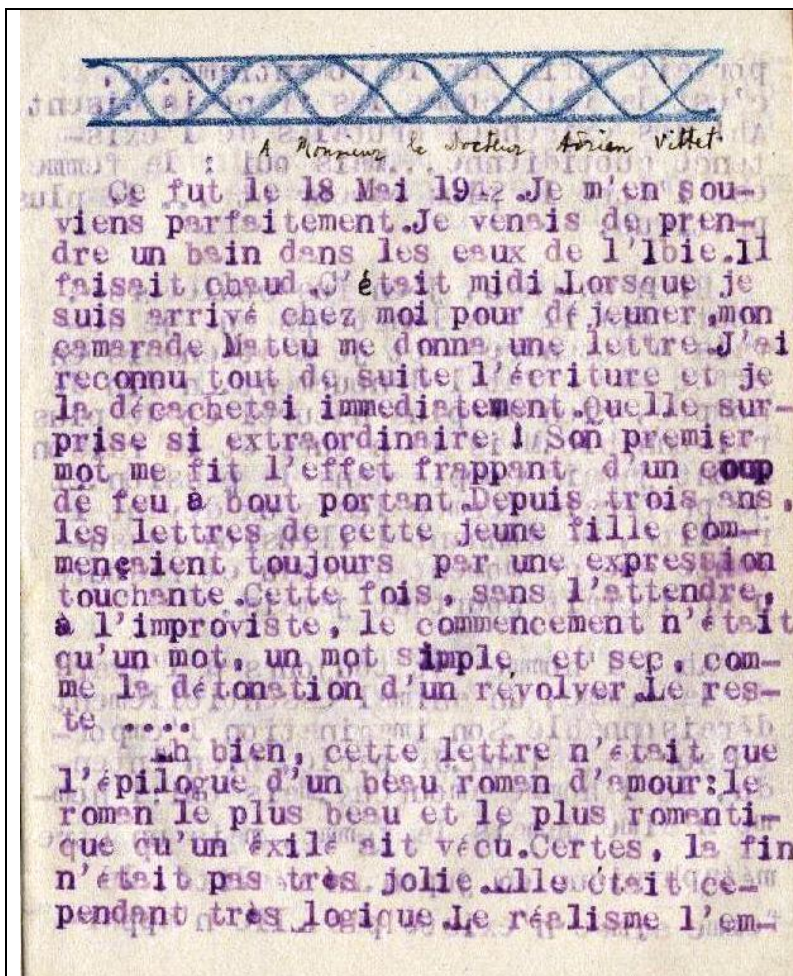 A Monsieur le Docteur Adrien Vittet
Ce fut le 18 Mai 1942.Je m'en sou-
viens parfaitement.Je venais de pren-
dre un bain dans les eaux de l'Ibie.Il
faisait chaud.C'était midi.Lorsque je
suis arrivé chez moi pour déjeuner,mon
camarade Mateu me donna une lettre.J'ai
reconnu tout de suite l'écriture et je
la décachetai immediatement.Quelle sur-
prise si extraordinaire ! Son premier
mot me fit l'effet frappant d'un coup
de feu à bout portant.Depuis trois ans,
les lettres de cette jeune fille com-
mençaient toujours par une expression
touchante.Cette fois, sans l'attendre,
à l'improviste, le commencement n'était
qu'un mot, un mot simple et sec, com-
me la détonation d'un revolver.Le res-
te ....
Eh bien, cette lettre n'était que
l'épilogue d'un beau roman d'amour:le
roman le plus beau et le plus romanti-
que qu'un éxilé ait vécu.Certes, la fin
n'était pas très jolie.Elle était ce-
pendant très logique.Le réalisme l'em-